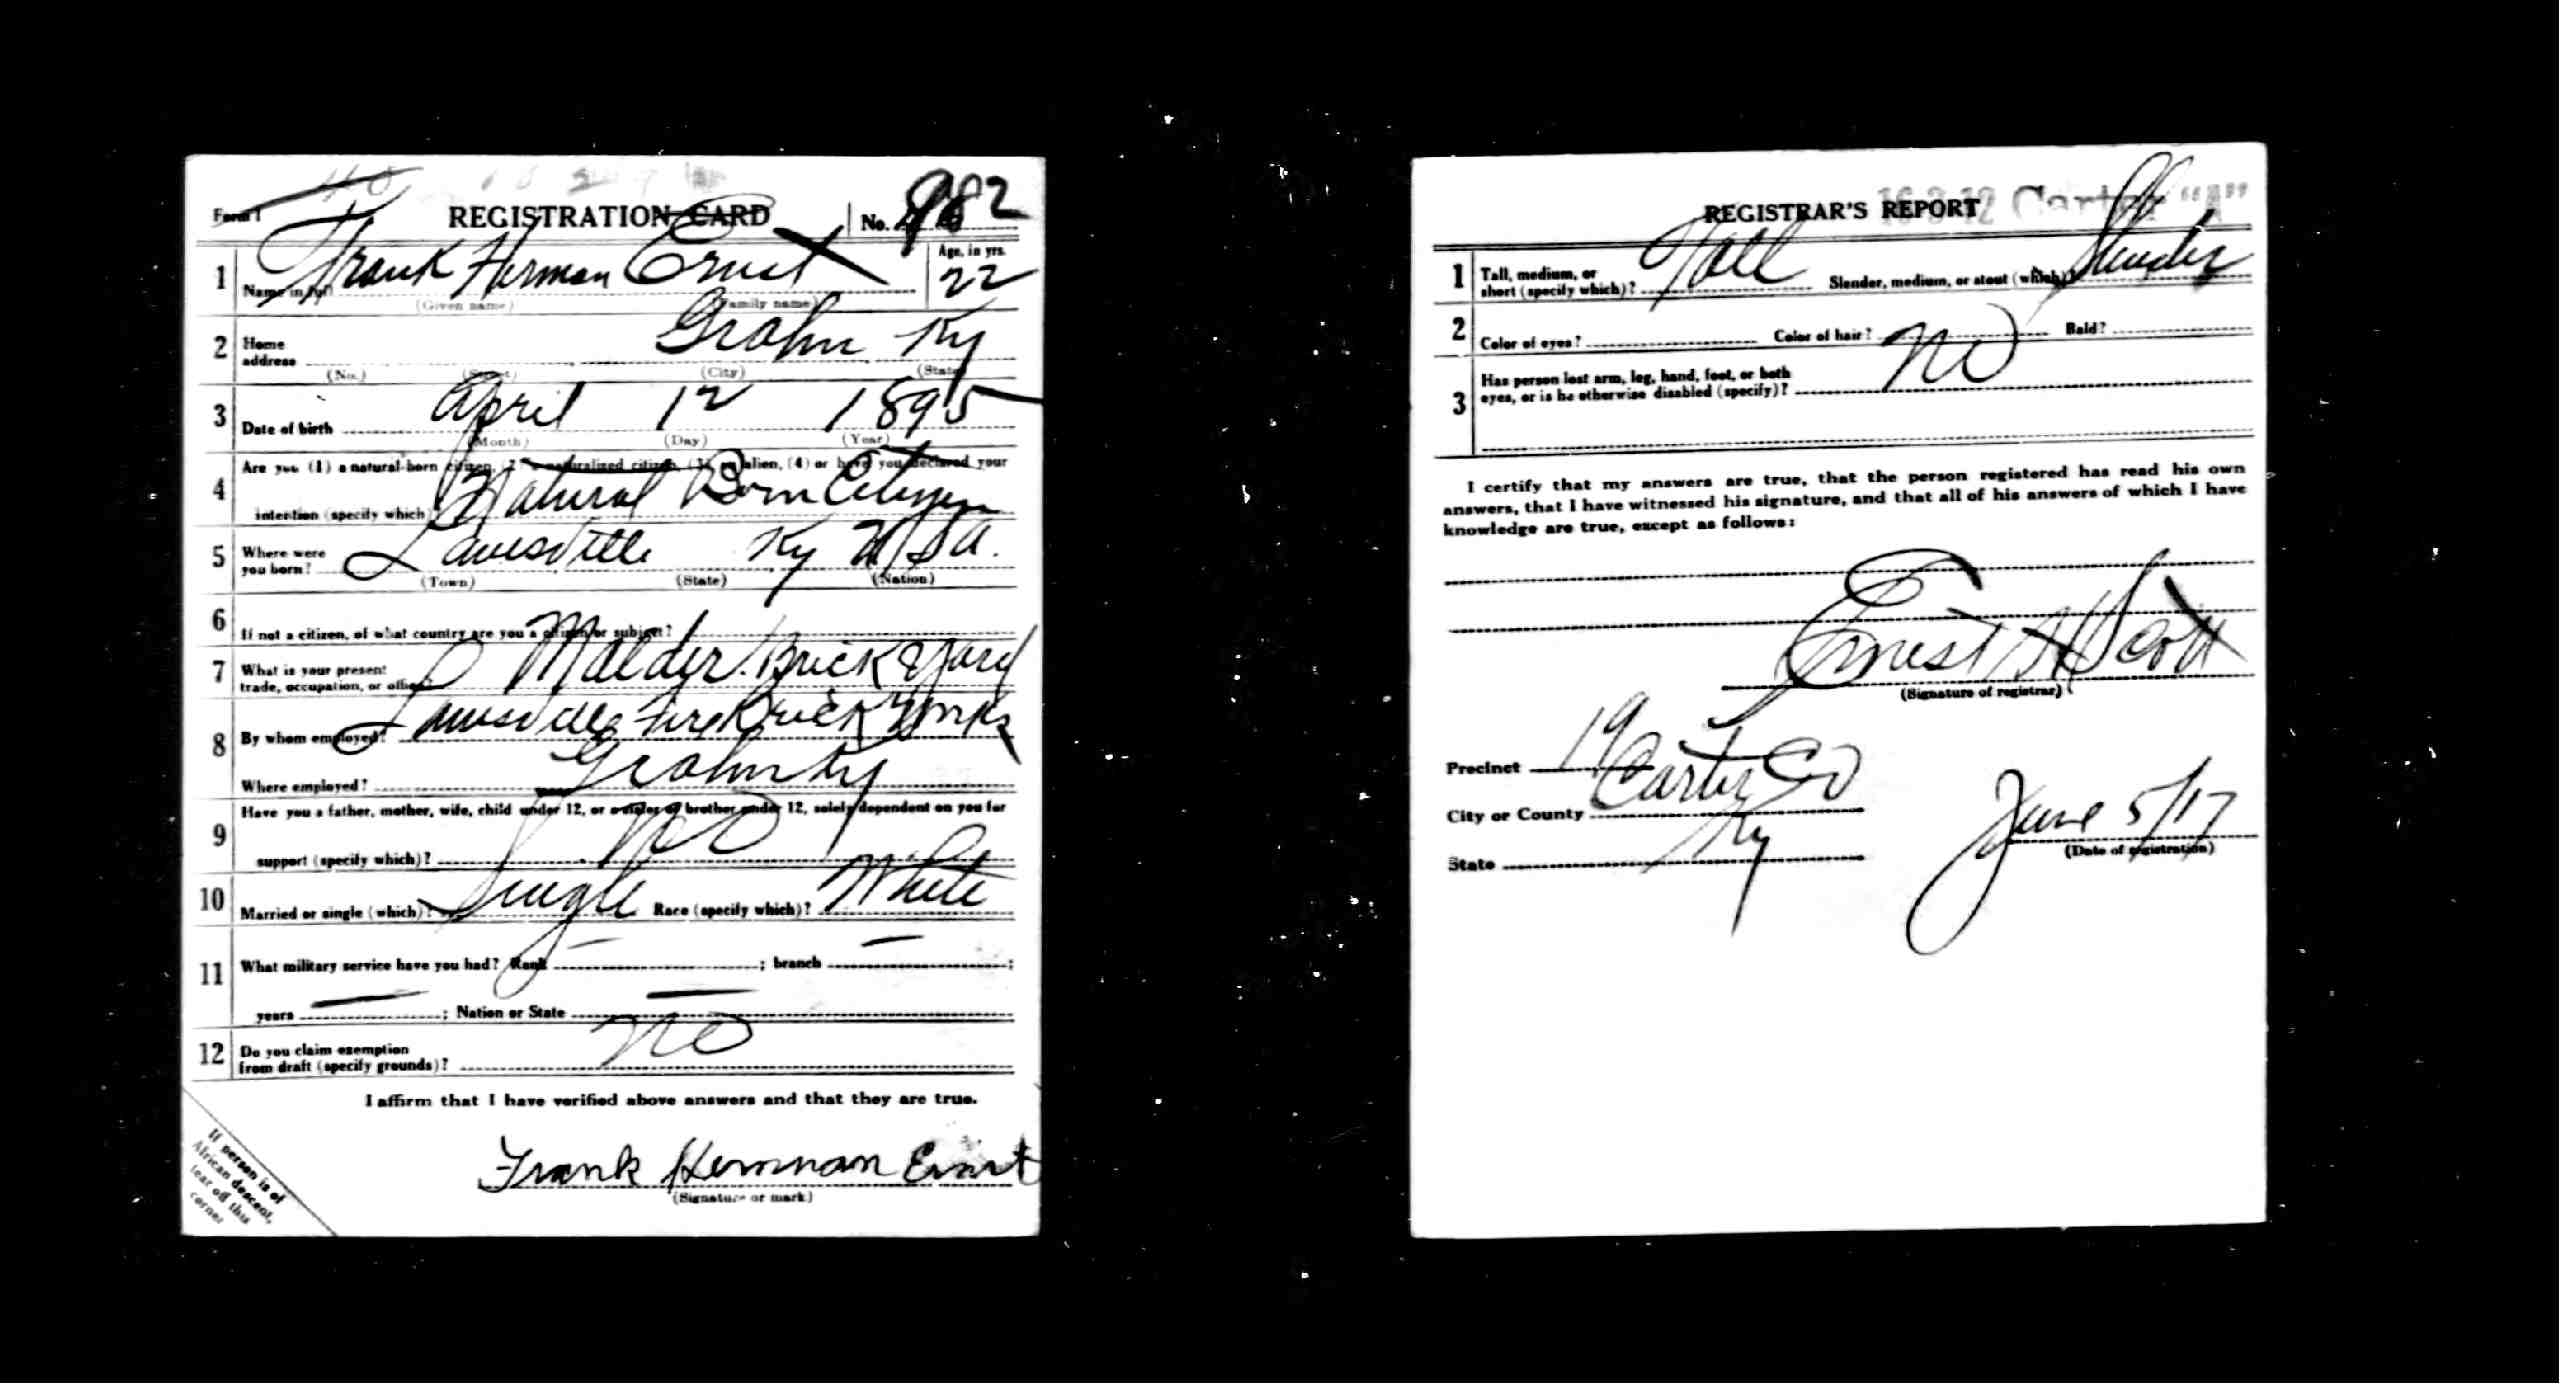 Form 1 REGISTRATION CARD No. 982
1 Name in full Frank Herman Ernst Age, in yrs. 22
(Given name) (Family name)
2 Home address Grahn Ky
(No.) (Street) (City) (State)
3 Date of birth April 12 1895
(Month) (Day) (Year)
Are you (1) a natural-born citizen, (2) a naturalized citizen, (3) an alien, (4) or have you declared your
4 intention (specify which) Natural Born Citizen
5 Where were you born? Louisville Ky U S A.
(Town) (State) (Nation)
6 If not a citizen, of what country are you a citizen or subject?
7 What is your present trade, occupation, or office? Malder. Brick Yard
8 By whom employed? Louisville Fire Brick Works
Where employed? Grahn Ky
Have you a father, mother, wife, child under 12, or a sister or brother under 12, solely dependent on you for
9 support (specify which)? No
10 Married or single (which)? Single Race (specify which)? White
11 What military service have you had? Rank — ; branch — ;
years — ; Nation or State —
12 Do you claim exemption from draft (specify grounds)? No
I affirm that I have verified above answers and that they are true.
Frank Herman Ernst
(Signature or mark)
If person is of
African descent,
tear off this
corner
16-3-12 Carter "A"
REGISTRAR'S REPORT
1 Tall, medium, or short (specify which)? Tall Slender, medium, or stout (which)? Slender
2 Color of eyes? Color of hair? Bald?
3 Has person lost arm, leg, hand, foot, or both eyes, or is he otherwise disabled (specify)? No
I certify that my answers are true, that the person registered has read his own
answers, that I have witnessed his signature, and that all of his answers of which I have
knowledge are true, except as follows:
Ernest H Scott
(Signature of registrar)
Precinct 19
City or County Carter Co
State Ky
June 5/17
(Date of registration)